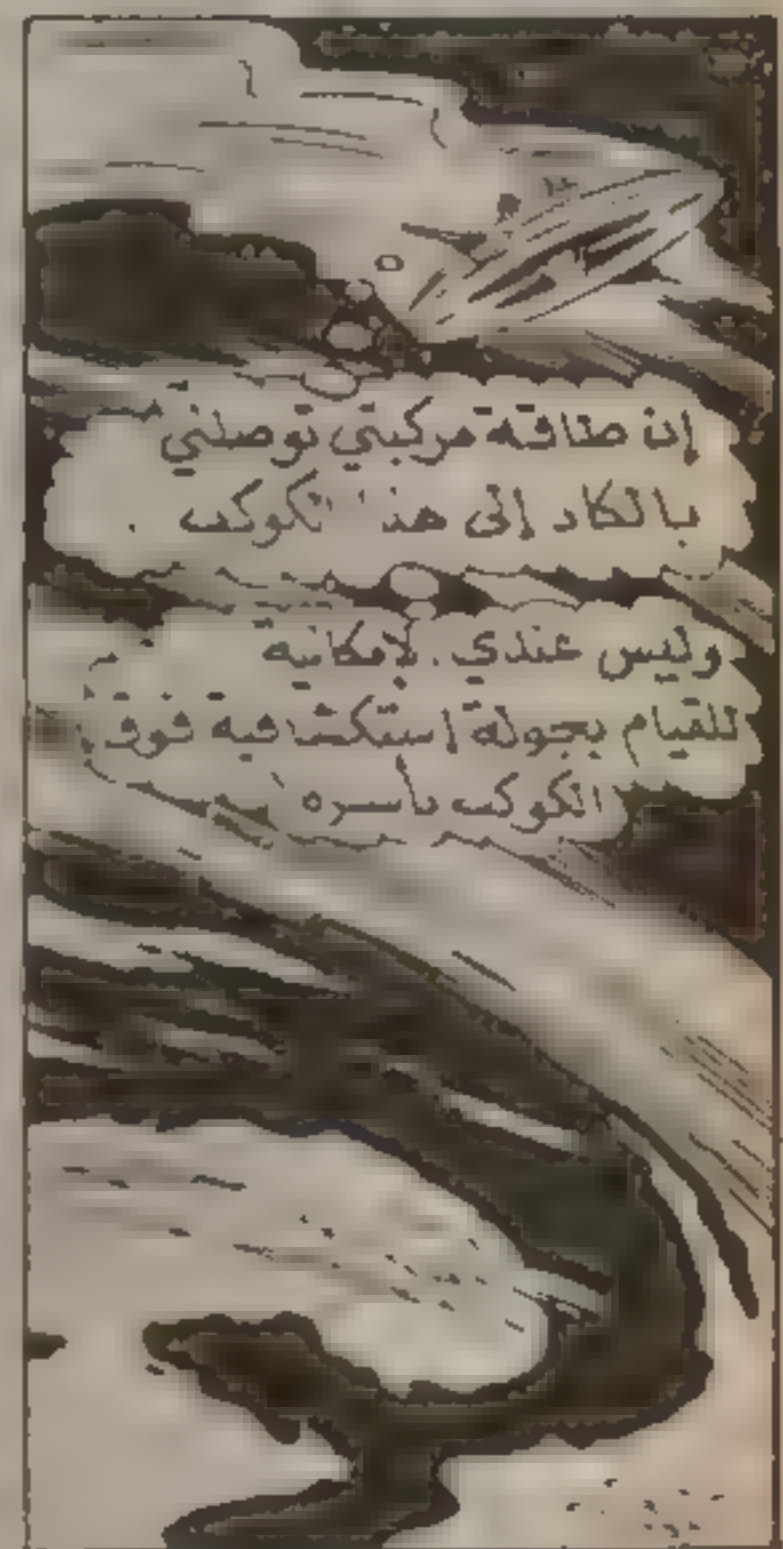 إن طاقة مركبتي توصلني
بالكاد إلى هذا الكوكب
وليس عندي الإمكانية
للقيام بجولة إستكشافية فوق
الكوكب بأسره